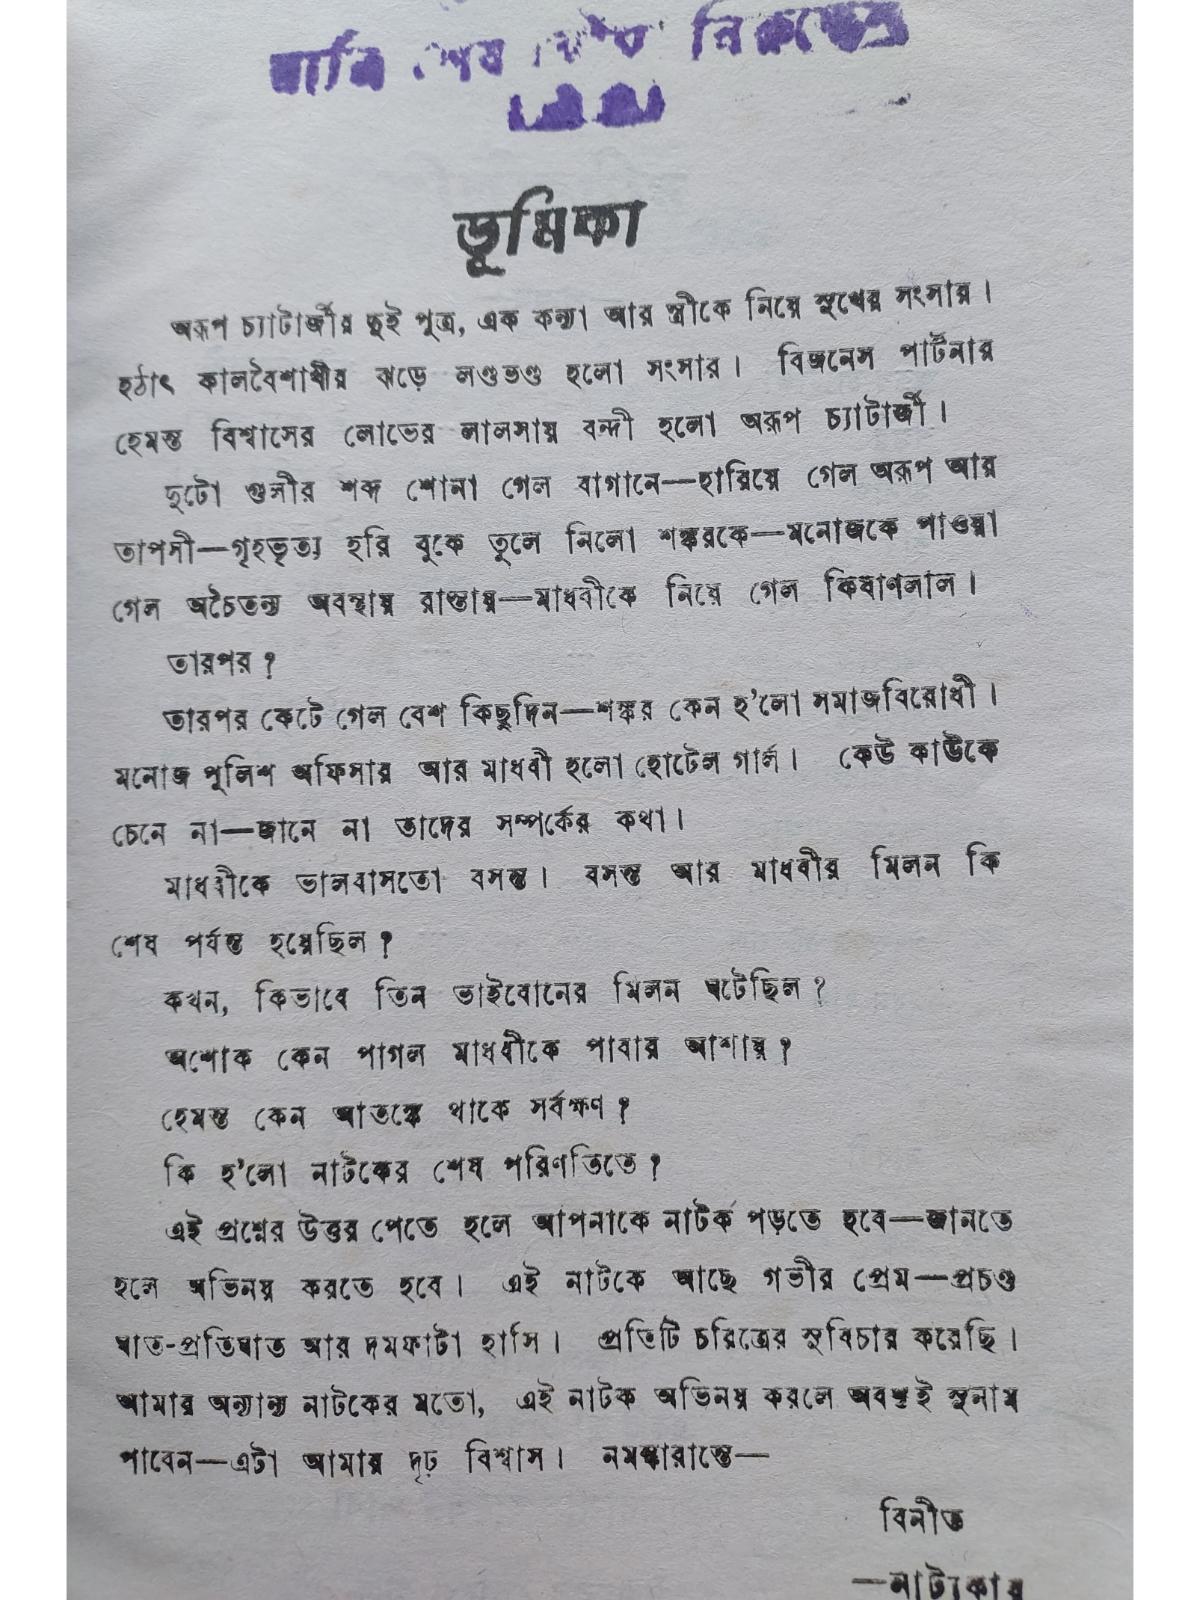 শেষ
ভূমিকা
অরূপ চ্যাটার্জীর দুই পুত্র, এক কন্যা আর স্ত্রীকে নিয়ে সুখের সংসার।
হঠাৎ কালবৈশাখীর ঝড়ে লণ্ডভণ্ড হলো সংসার। বিজনেস পার্টনার
হেমন্ত বিশ্বাসের লোভের লালসায় বন্দী হলো অরূপ চ্যাটার্জী।
দুটো গুলীর শব্দ শোনা গেল বাগানে—হারিয়ে গেল অরূপ আর
তাপসী—গৃহভৃত্য হরি বুকে তুলে নিলো শঙ্করকে—মনোজকে পাওয়া
গেল অচৈতন্য অবস্থায় রাস্তায়—মাধবীকে নিয়ে গেল কিষাণলাল।
তারপর?
তারপর কেটে গেল বেশ কিছুদিন—শঙ্কর কেন হ'লো সমাজবিরোধী।
মনোজ পুলিশ অফিসার আর মাধবী হলো হোটেল গার্ল। কেউ কাউকে
চেনে না—জানে না তাদের সম্পর্কের কথা।
মাধবীকে ভালবাসতো বসন্ত। বসন্ত আর মাধবীর মিলন কি
শেষ পর্যন্ত হয়েছিল?
কখন, কিভাবে তিন ভাইবোনের মিলন ঘটেছিল?
অশোক কেন পাগল মাধবীকে পাবার আশায়?
হেমন্ত কেন আতঙ্কে থাকে সর্বক্ষণ?
কি হ'লো নাটকের শেষ পরিণতিতে?
এই প্রশ্নের উত্তর পেতে হলে আপনাকে নাটক পড়তে হবে—জানতে
হলে অভিনয় করতে হবে। এই নাটকে আছে গভীর প্রেম—প্রচণ্ড
ঘাত-প্রতিঘাত আর দমফাটা হাসি। প্রতিটি চরিত্রের সুবিচার করেছি।
আমার অন্যান্য নাটকের মতো, এই নাটক অভিনয় করলে অবশ্যই সুনাম
পাবেন—এটা আমার দৃঢ় বিশ্বাস। নমস্কারান্তে—
বিনীত
—নাট্যকার